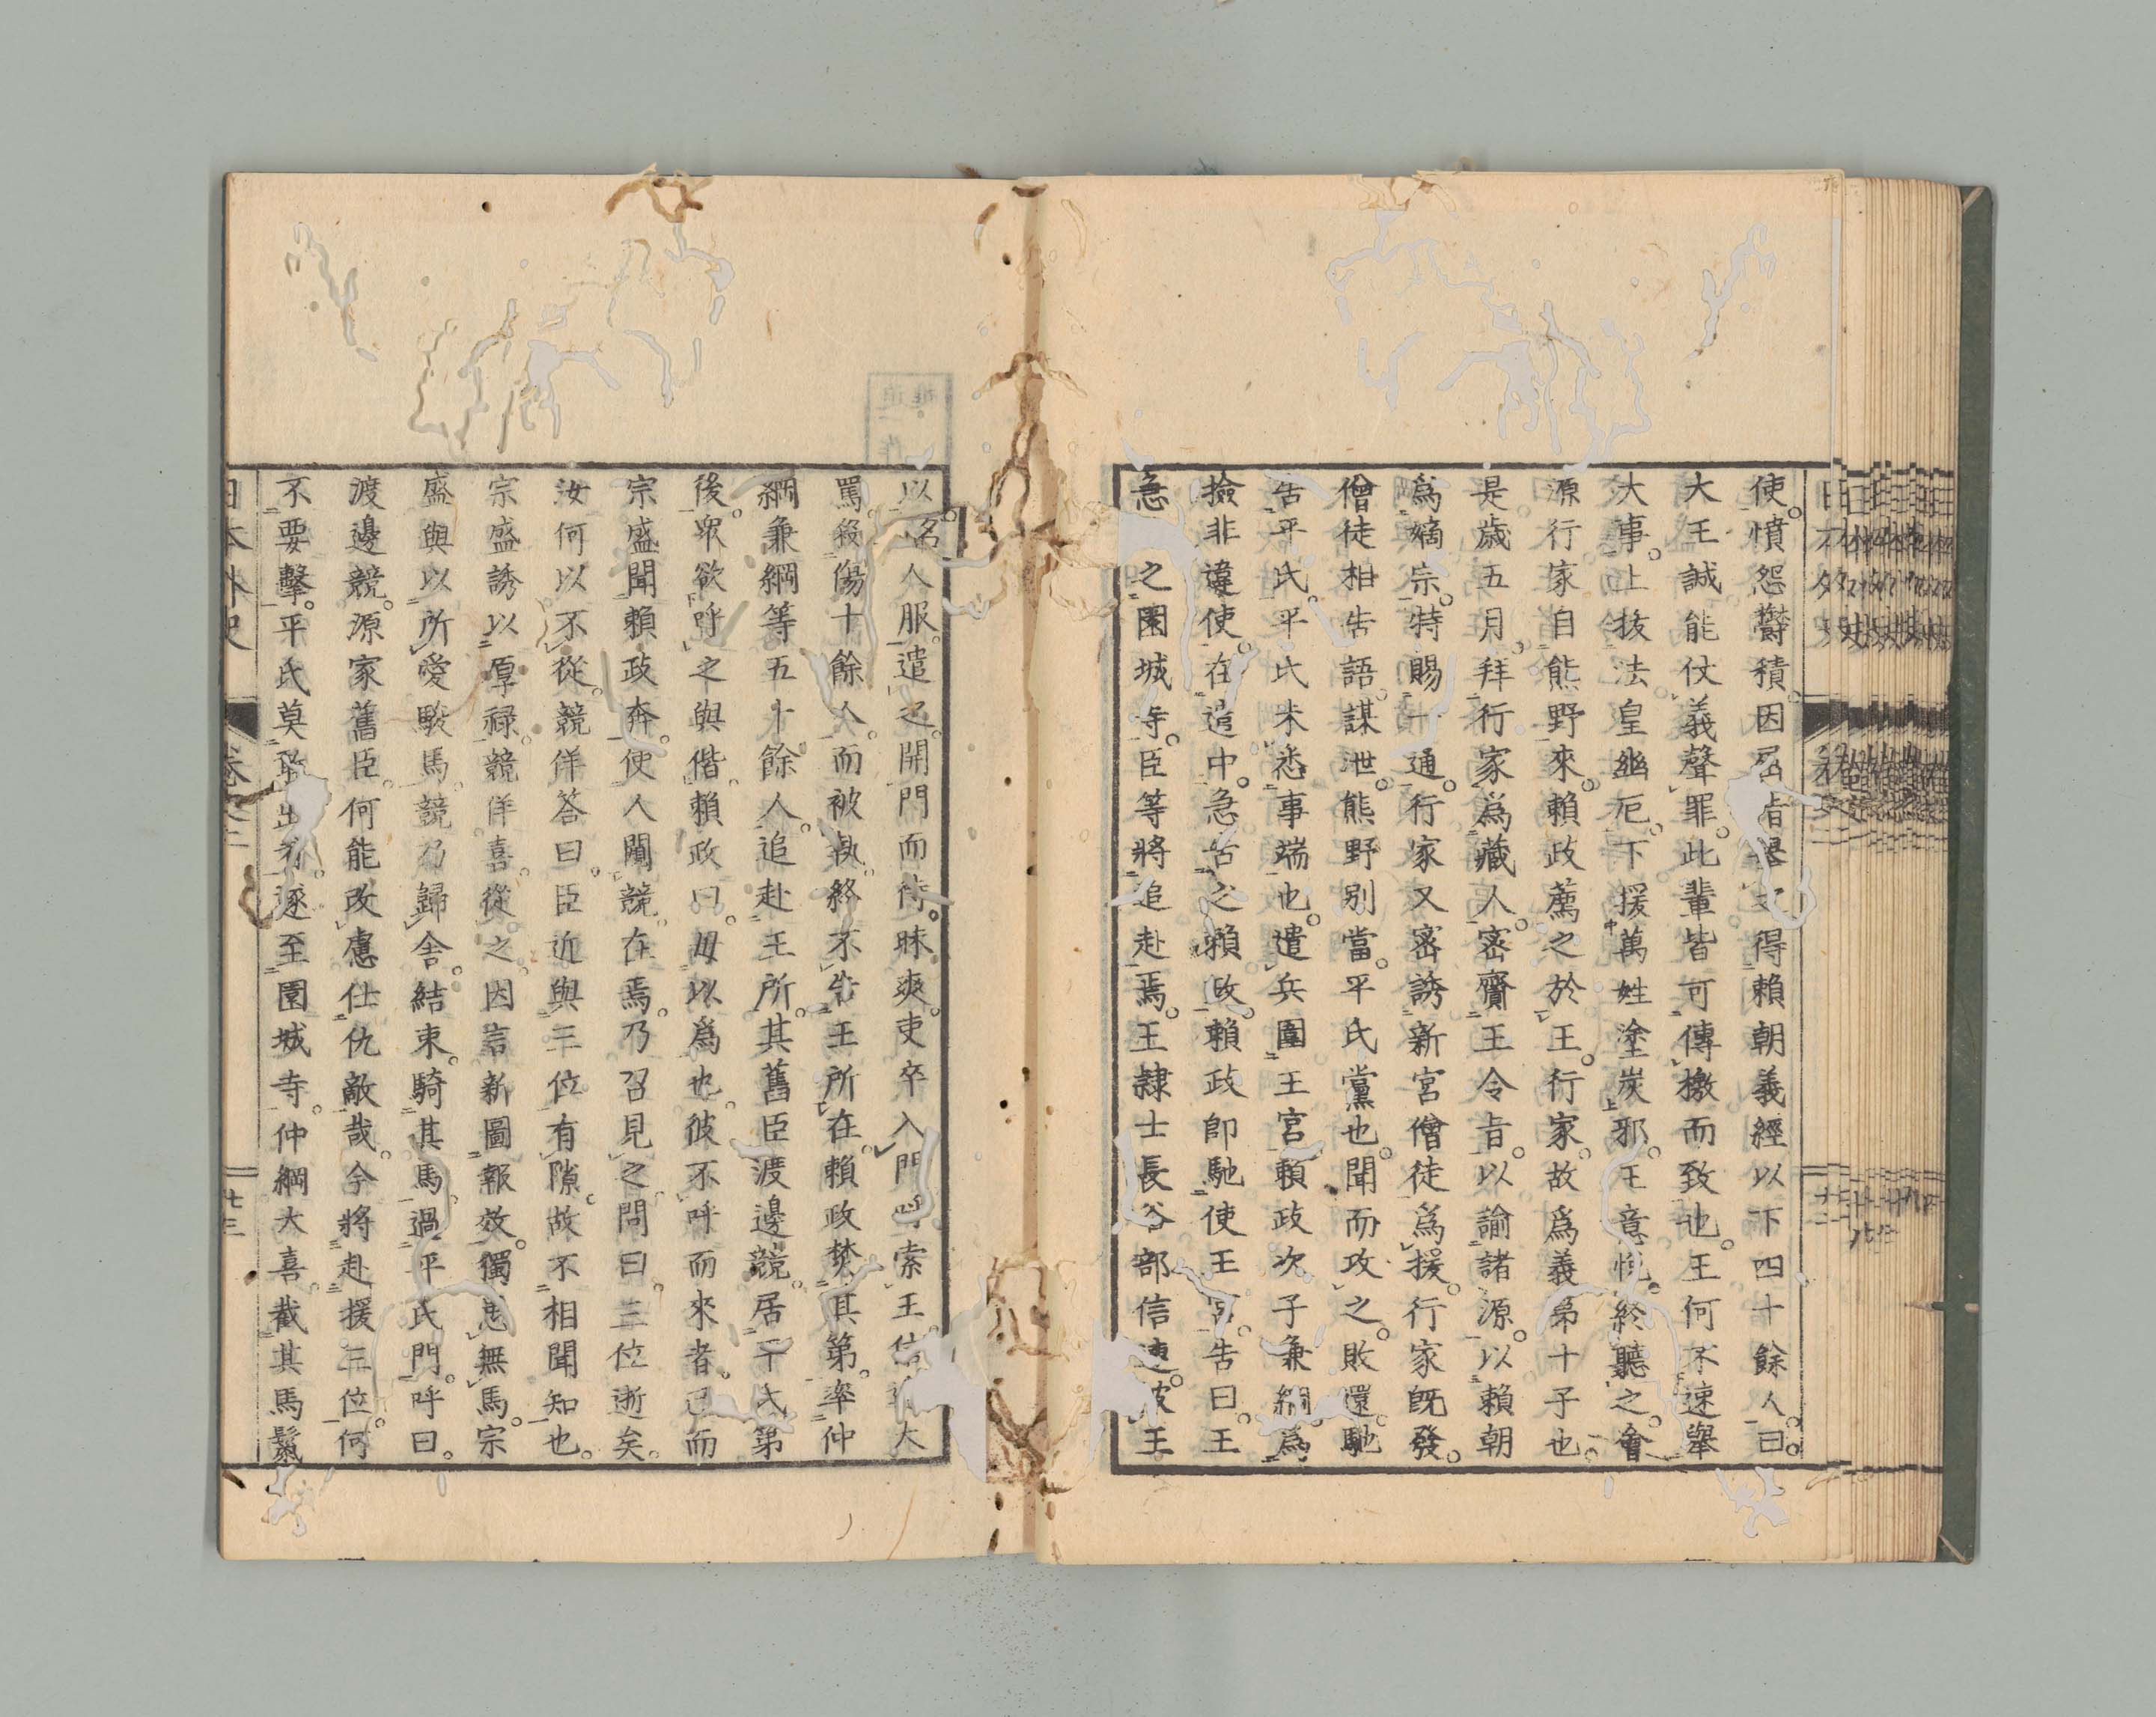 使。憤怨鬱積。因屈指擧之。得賴朝義經以下四十餘人。曰。
大王誠能仗義聲罪。此輩皆可傳檄而致也。王何不速擧
大事。上抜法皇幽厄。下援萬姓塗炭邪。王意悅。終聽之。會
源行家自熊野來。賴政薦之於王。行家。故爲義第十子也。
是歲五月。拜行家爲藏人。密齎王令旨。以諭諸源。以賴朝
爲嫡宗。特賜一通。行家又密誘新宮僧徒爲援。行家旣發。
僧徒相告語。謀泄。熊野別當。平氏黨也。聞而攻之。敗還。馳
告平氏。平氏未悉事端也。遣兵圍王宮。賴政次子兼綱。爲
撿非違使。在遣中。急告之賴政。賴政卽馳使王宮。告曰。王
急之園城寺。臣等將追赴焉。王隷士長谷部信連。被王
以人服。遣之。開門而待。昧爽。吏卒入門索王。信連大
罵。殺傷十餘人。而被執。終不告王所在。賴政焚其第。率仲
綱兼綱等五十餘人。追赴王所。其舊臣渡邊競。居平氏第
後。衆欲呼之與偕。賴政曰。毋以爲也。彼不呼而來者。已而
宗盛聞賴政奔。使人闚競。在焉。乃召見之問曰。三位逝矣。
汝何以不從。競佯答曰。臣近與三位有隙。故不相聞知也。
宗盛誘以厚祿。競佯喜從之。因言新圖報效。獨患無馬。宗
盛與以所愛駿馬。競乃歸舍。結束。騎其馬。過平氏門。呼曰。
渡邊競。源家舊臣。何能改慮仕仇敵哉。今將赴援三位。何
不要擊。平氏莫敢出者。遂至園城寺。仲綱大喜。截其馬鬣
日本外史 卷之二 廿三